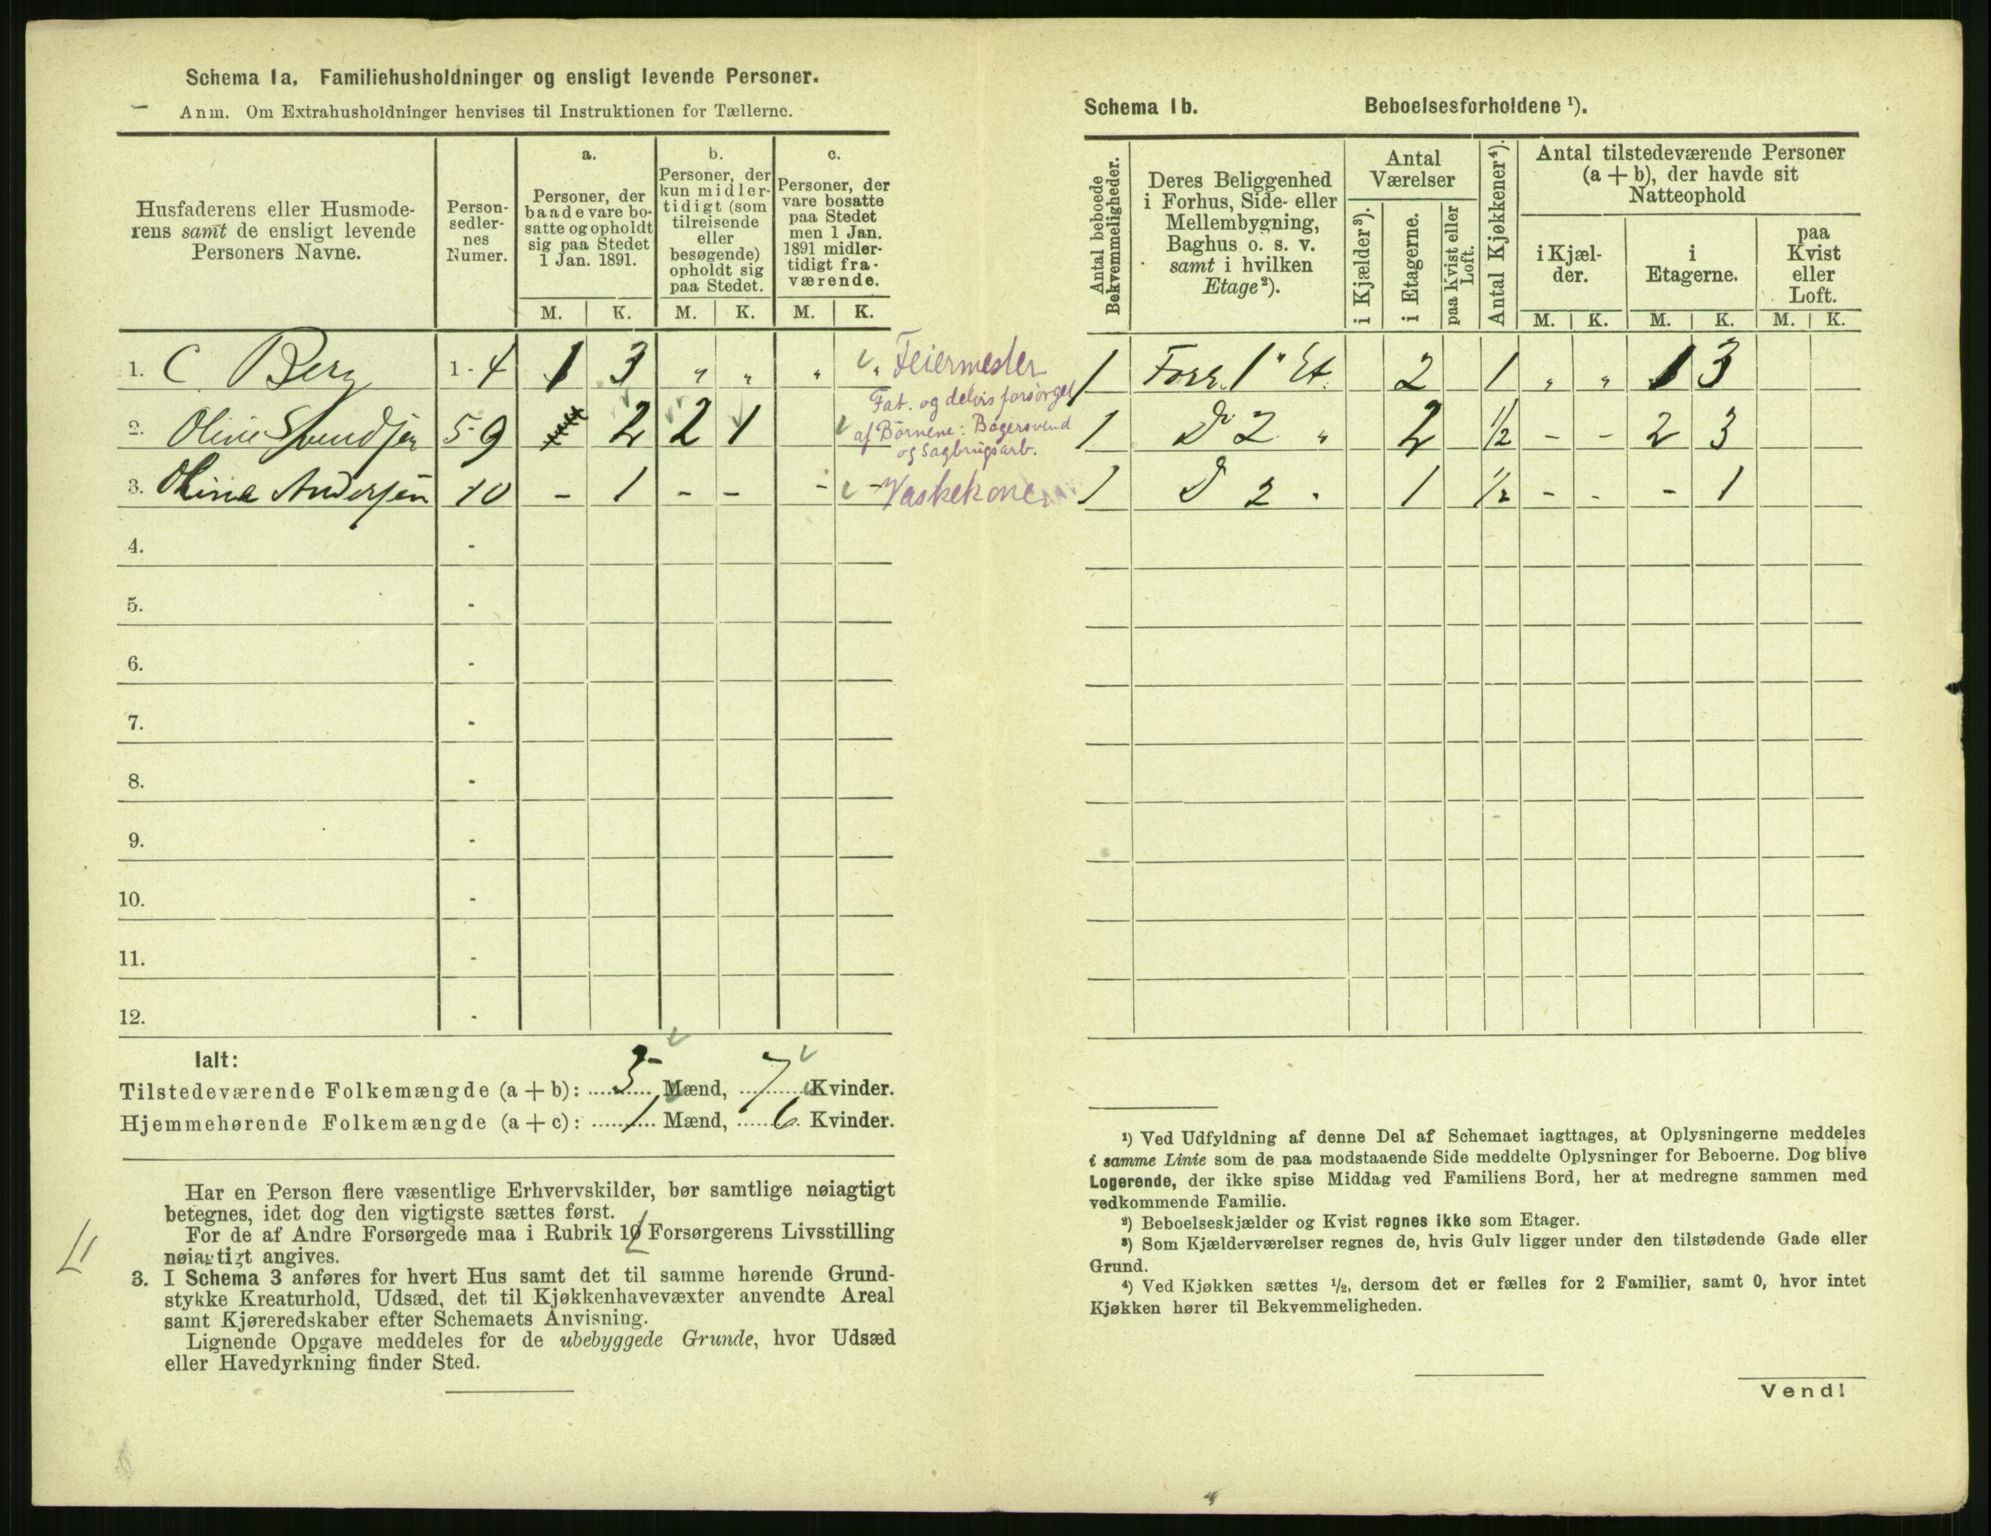 Schema 1a. Familiehusholdninger og ensligt levende Personer.
Anm. Om Extrahusholdninger henvises til Instruktionen for Tællerne.
Husfaderens eller Husmode-
rens samt de ensligt levende
Personers Navne.
Person-
sedler-
nes
Numer.
a.
Personer, der
baade vare bo-
satte og opholdt
sig paa Stedet
1 Jan. 1891.
b.
Personer, der
kun midler-
tidigt (som
tilreisende
eller
besøgende)
opholdt sig
paa Stedet.
c.
Personer, der
vare bosatte
paa Stedet
men 1 Jan.
1891 midler-
tidigt fra-
værende.
M. K. M. K. M. K.
1. C Berg 1 - 4 1 3 " " " " Feiermester
2. Oline Svendsen 5 - 9 2 2 1 Fat. og delvis forsørget
af Børnene: Bagersvend
og Sagbrugsarb.
3. Oline Andersen - 10 - 1 - - - - Vaskekone
4. -
5. -
6. -
7. -
8. -
9. -
10. -
11. -
12. -
Ialt:
Tilstedeværende Folkemængde (a + b): 3 Mænd, 7 Kvinder.
Hjemmehørende Folkemængde (a + c): 1 Mænd, 6 Kvinder.
Har en Person flere væsentlige Erhvervskilder, bør samtlige nøiagtigt
betegnes, idet dog den vigtigste sættes først.
For de af Andre Forsørgede maa i Rubrik 10 Forsørgerens Livsstilling
nøiagtigt angives.
3. I Schema 3 anføres for hvert Hus samt det til samme hørende Grund-
stykke Kreaturhold, Udsæd, det til Kjøkkenhavevæxter anvendte Areal
samt Kjøreredskaber efter Schemaets Anvisning.
Lignende Opgave meddeles for de ubebyggede Grunde, hvor Udsæd
eller Havedyrkning finder Sted.
Schema 1b. Beboelsesforholdene ¹).
Antal beboede
Bekvemmeligheder.
Deres Beliggenhed
i Forhus, Side- eller
Mellembygning,
Baghus o. s. v.
samt i hvilken
Etage²).
Antal
Værelser
i Kjælder³).
i Etagerne.
paa Kvist eller
Loft.
Antal Kjøkkener⁴).
Antal tilstedeværende Personer
(a + b), der havde sit
Natteophold
i Kjæl-
der.
i
Etagerne.
paa
Kvist
eller
Loft.
M. K. M. K. M. K.
1 Forr. 1" Et. 2 1 " " 1 3
1 Do 2 " 2 1/2 - - 2 3
1 Do 2 " 1 1/2 - - - 1
¹) Ved Udfyldning af denne Del af Schemaet iagttages, at Oplysningerne meddeles
i samme Linie som de paa modstaaende Side meddelte Oplysninger for Beboerne. Dog blive
Logerende, der ikke spise Middag ved Familiens Bord, her at medregne sammen med
vedkommende Familie.
²) Beboelseskjælder og Kvist regnes ikke som Etager.
³) Som Kjælderværelser regnes de, hvis Gulv ligger under den tilstødende Gade eller
Grund.
⁴) Ved Kjøkken sættes ½, dersom det er fælles for 2 Familier, samt 0, hvor intet
Kjøkken hører til Bekvemmeligheden.
Vend!